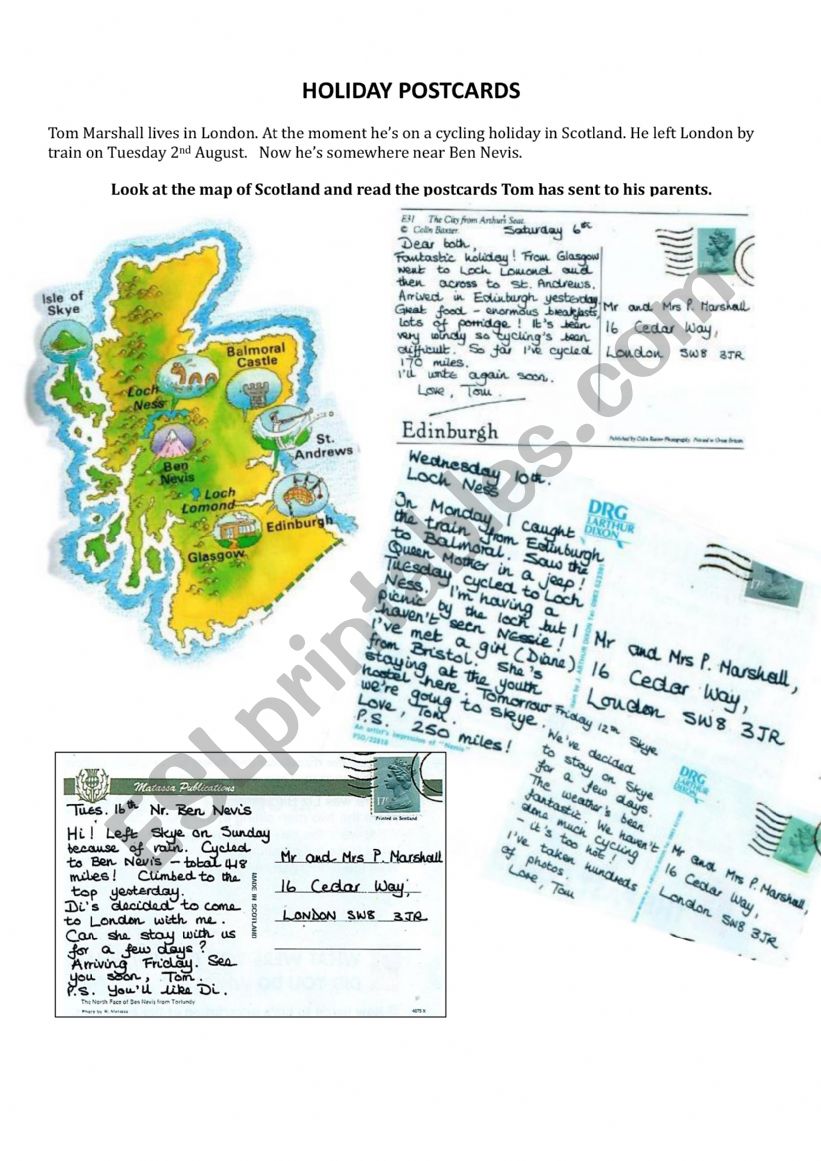 HOLIDAY POSTCARDS
Tom Marshall lives in London. At the moment he's on a cycling holiday in Scotland. He left London by
train on Tuesday 2nd August. Now he's somewhere near Ben Nevis.
Look at the map of Scotland and read the postcards Tom has sent to his parents.
Isle of
Skye
Loch
Ness
Balmoral
Castle
Ben
Nevis
St.
Andrews
Loch
Lomond
Edinburgh
Glasgow
E31 The City from Arthur's Seat.
© Colin Baxter.
Saturday 6th
Dear both,
Fantastic holiday! From Glasgow
went to Loch Lomond and
then across to St. Andrews.
Arrived in Edinburgh yesterday.
Great food - enormous breakfasts,
lots of porridge! It's been
very windy so cycling's been
difficult. So far I've cycled
170 miles.
I'll write again soon.
Love, Tom
Mr and Mrs P. Marshall
16 Cedar Way,
London SW8 3JR
Edinburgh
Published by Colin Baxter Photography. Printed in Great Britain.
Wednesday 10th.
Loch Ness
On Monday I caught
the train from Edinburgh
to Balmoral. Saw the
Queen Mother in a jeep!
Tuesday cycled to Loch
Ness. I'm having a
picnic by the loch but I
haven't seen Nessie!
I've met a girl (Diane)
from Bristol. She's
staying at the youth
hostel here. Tomorrow
we're going to Skye.
Love, Tom.
P.S. 250 miles!
An artist's impression of "Nessie"
DRG
J. ARTHUR
DIXON
17P
Mr and Mrs P. Marshall,
16 Cedar Way,
London SW8 3JR
Friday 12th Skye
We've decided
to stay on Skye
for a few days.
The weather's been
fantastic. We haven't
done much cycling
- it's too hot!
I've taken hundreds
of photos.
Love, Tom
DRG
J. ARTHUR
DIXON
Mr and Mrs P. Marshall,
16 Cedar Way,
London SW8 3JR
Matassa Publications
17P
Printed in Scotland
Tues. 16th Nr. Ben Nevis
Hi! Left Skye on Sunday
because of rain. Cycled
to Ben Nevis - total 418
miles! Climbed to the
top yesterday.
Di's decided to come
to London with me.
Can she stay with us
for a few days?
Arriving Friday. See
you soon, Tom.
P.S. You'll like Di.
MADE IN SCOTLAND
Mr and Mrs P. Marshall
16 Cedar Way,
LONDON SW8 3JR
The North Face of Ben Nevis from Torlundy
Photo by N. Matassa
ESLprintables.com